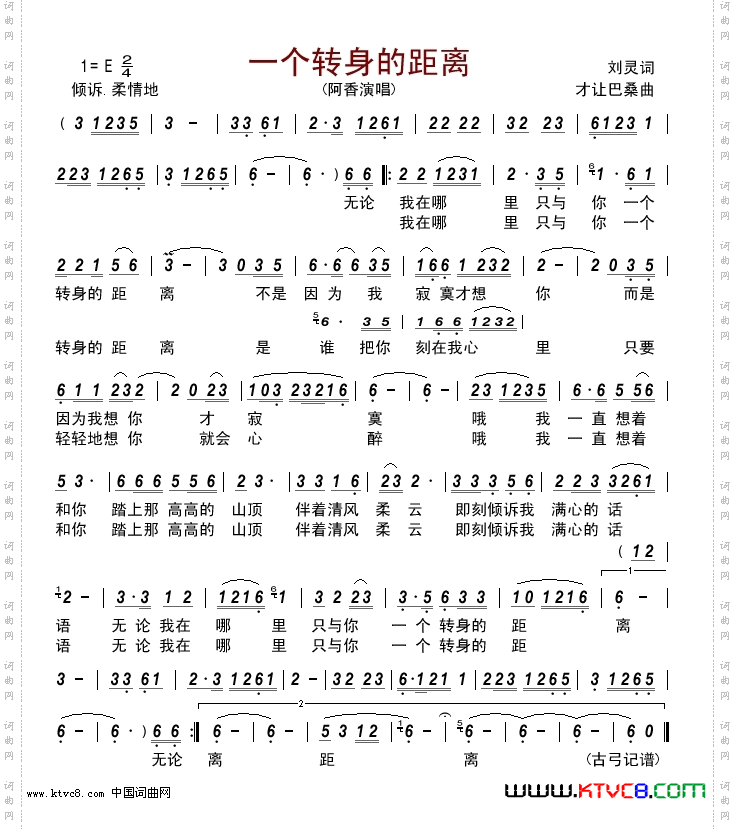 一个转身的距离
1= E 2/4
刘灵词
倾诉. 柔情地
(阿香演唱)
才让巴桑曲
( 3 1235 | 3 - | 33 61 | 2·3 1261 | 22 22 | 32 23 | 61231 |
223 1265 | 3 1265 | 6 - | 6·) 66 |: 22 1231 | 2·35 | 61· 61 |
无论 我在哪 里 只与 你 一个
我在哪 里 只与 你 一个
221 56 | 3 - | 3035 | 6·6 635 | 166 1232 | 2 - | 2035 |
转身的 距 离 不是 因 为 我 寂 寞才想 你 而是
56· 35 | 166 1232
转身的 距 离 是 谁 把你 刻在我心 里 只要
611 232 | 2023 | 103 23216 | 6 - | 6 - | 23 1235 | 6·6 556 |
因为我想 你 才 寂 寞 哦 我 一 直 想着
轻轻地想 你 就会 心 醉 哦 我 一 直 想着
53· | 666 556 | 23· | 3316 | 232· | 33356 | 223 3261 |
和你 踏上那 高高的 山顶 伴着清风 柔 云 即刻倾诉我 满心的 话
和你 踏上那 高高的 山顶 伴着清风 柔 云 即刻倾诉我 满心的 话
( 12
1
12 - | 3·3 12 | 1216 61 | 2·35 | 3·5 633 | 10 1216 | 6 - |
语 无 论 我在 哪 里 只与你 一 个 转身的 距 离
语 无 论 我在 哪 里 只与你 一 个 转身的 距
3 - | 31235 | 3 - | 33 61 | 2·3 1261 | 2 - | 32 23 | 6·121 1 | 223 1265 | 3 1265 |
2
6 - | 6·) 66 :| 6 - | 6 - | 5312 | 16 - | 56 - | 60 ‖
无论 离 距 离 (古弓记谱)
www.ktvc8.com 中国词曲网
www.KTVC8.com
词曲网